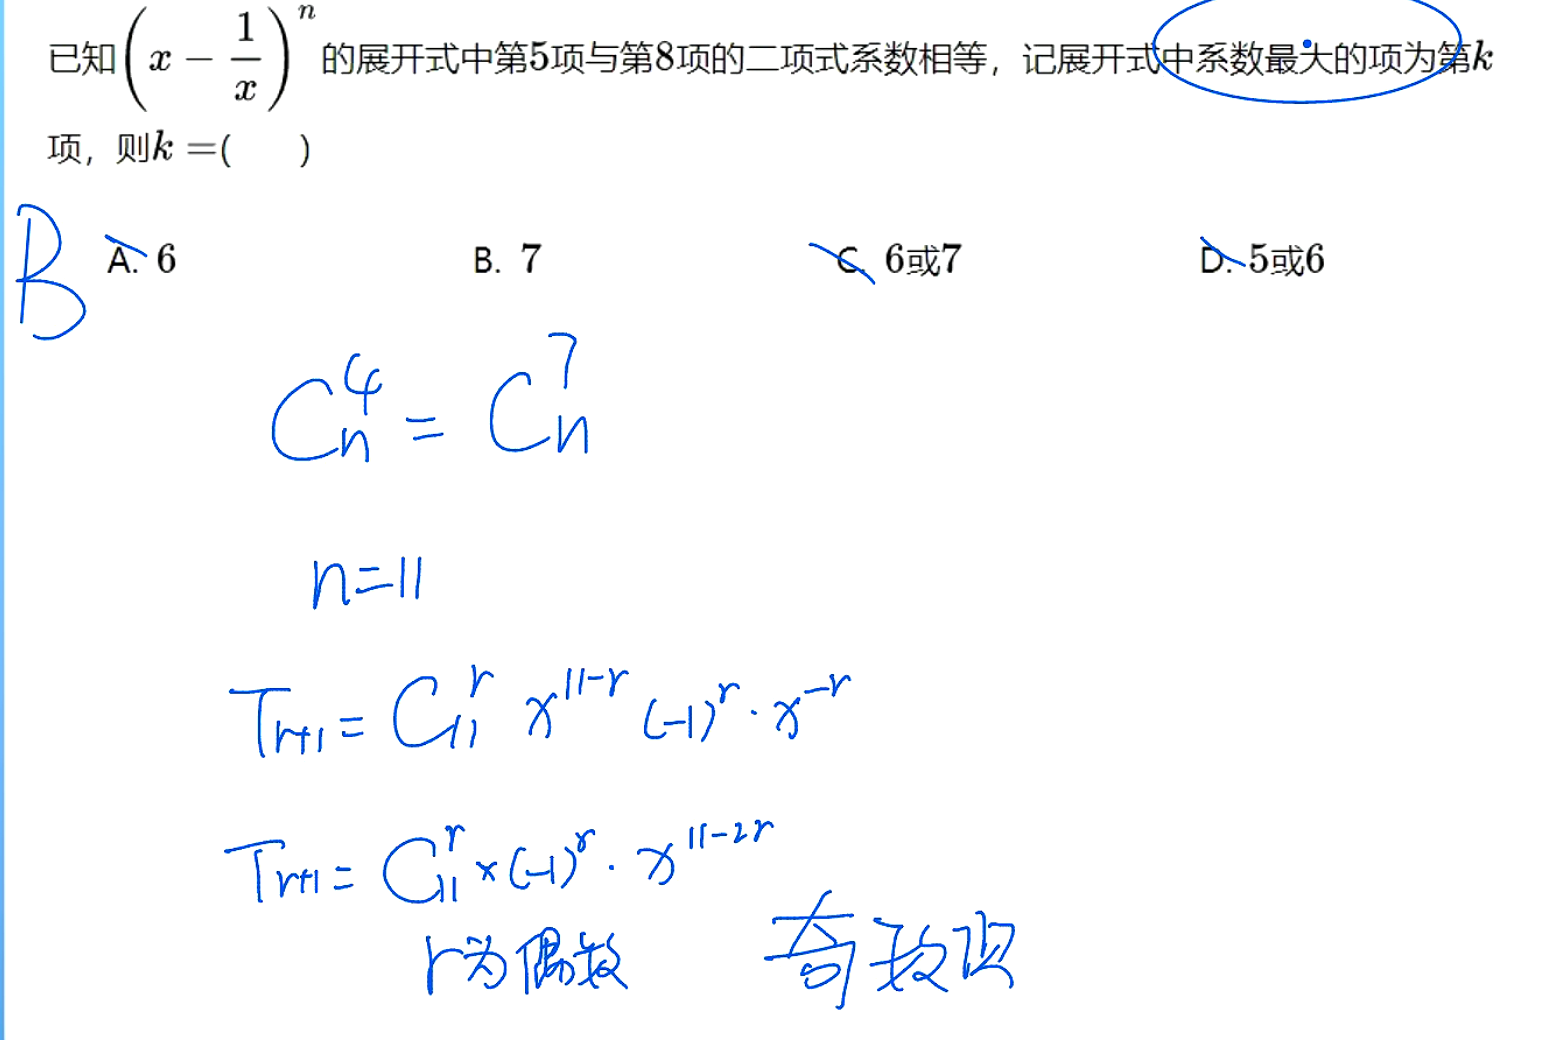 已知(x − 1/x)^n 的展开式中第5项与第8项的二项式系数相等，记展开式中系数最大的项为第k
项，则k =(    )
B
A. 6    B. 7    C. 6或7    D. 5或6
C_n^4 = C_n^7
n=11
T_{r+1} = C_{11}^r x^{11-r} (-1)^r · x^{-r}
T_{r+1} = C_{11}^r × (-1)^r · x^{11-2r}
r为偶数    奇数项